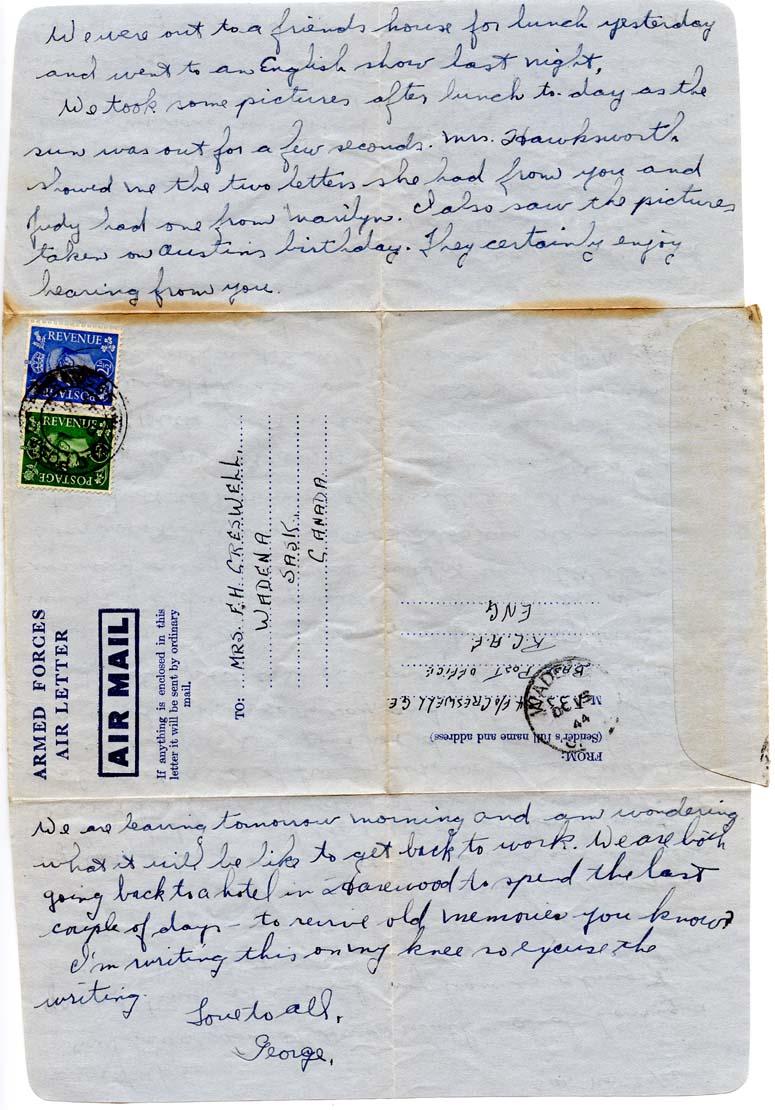 We were out to a friends house for lunch yesterday
and went to an English show last night,
We took some pictures after lunch to-day as the
sun was out for a few seconds. Mrs. Hawksworth
showed me the two letters she had from you and
Judy had one from Marilyn. I also saw the pictures
taken on Austin's birthday. They certainly enjoy
hearing from you.
REVENUE
POSTAGE
REVENUE
POSTAGE
ARMED FORCES
AIR LETTER
AIR MAIL
If anything is enclosed in this
letter it will be sent by ordinary
mail.
TO: MRS. F.H. CRESWELL
WADENA
SASK
CANADA
FROM:
(Sender's full name and address)
F/O CRESWELL G E
BASE POST OFFICE
R.C.A.F
ENG
WAD
DE
44
We are leaving tomorrow morning and am wondering
what it will be like to get back to work. We are both
going back to a hotel in Harewood to spend the last
couple of days - to revive old memories you know?
I'm writing this on my knee so excuse the
writing.
Love to all,
George.